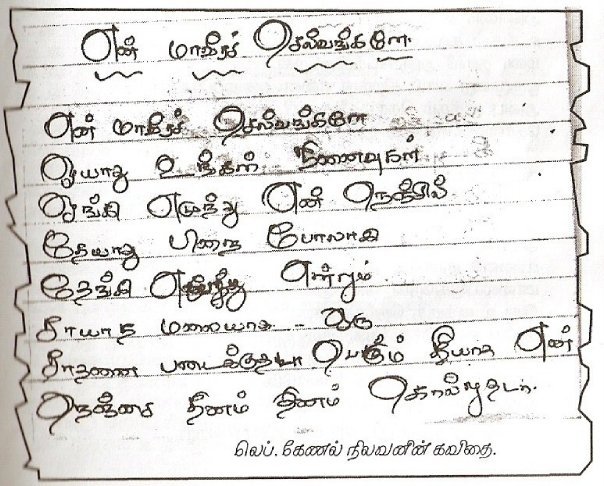 என் மாவீரச் செல்வங்களே.
என் மாவீரச் செல்வங்களே
ஓயாது உங்கள் நினைவுகள்
ஓங்கி எழுந்து என் நெஞ்சில்
தேயாது பிறை போலாகி
தேங்கி என்றும்
சாயாத மலையாக - ஒரு
சாதனை படைக்குதடா பெரும் தீயாக என்
நெஞ்சை தினம் தினம் கொல்லுதடா.
லெப். கேணல் நிலவனின் கவிதை.